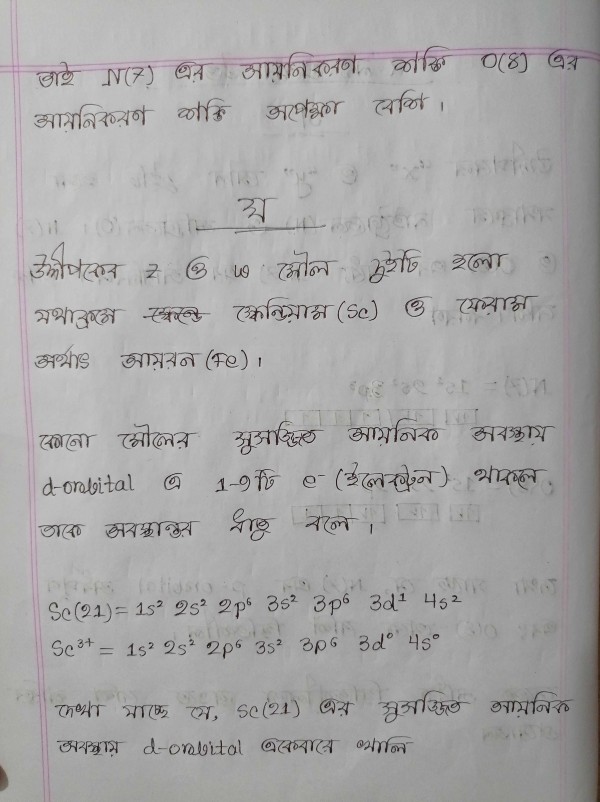 তাই N(7) এর আয়নিকরণ শক্তি O(8) এর
আয়নিকরণ শক্তি অপেক্ষা বেশি।
ঘ
উদ্দীপকের z ও w মৌল দুইটি হলো
যথাক্রমে স্কেন্ডিয়াম (Sc) ও ফেরাম
অর্থাৎ আয়রন (Fe)।
কোনো মৌলের সুসজ্জিত আয়নিক অবস্থায়
d-orbital এ 1-9টি e⁻ (ইলেকট্রন) থাকলে
তাকে অবস্থান্তর ধাতু বলে।
Sc(21) = 1s² 2s² 2p⁶ 3s² 3p⁶ 3d¹ 4s²
Sc³⁺ = 1s² 2s² 2p⁶ 3s² 3p⁶ 3d⁰ 4s⁰
দেখা যাচ্ছে যে, Sc(21) এর সুসজ্জিত আয়নিক
অবস্থায় d-orbital একেবারে খালি